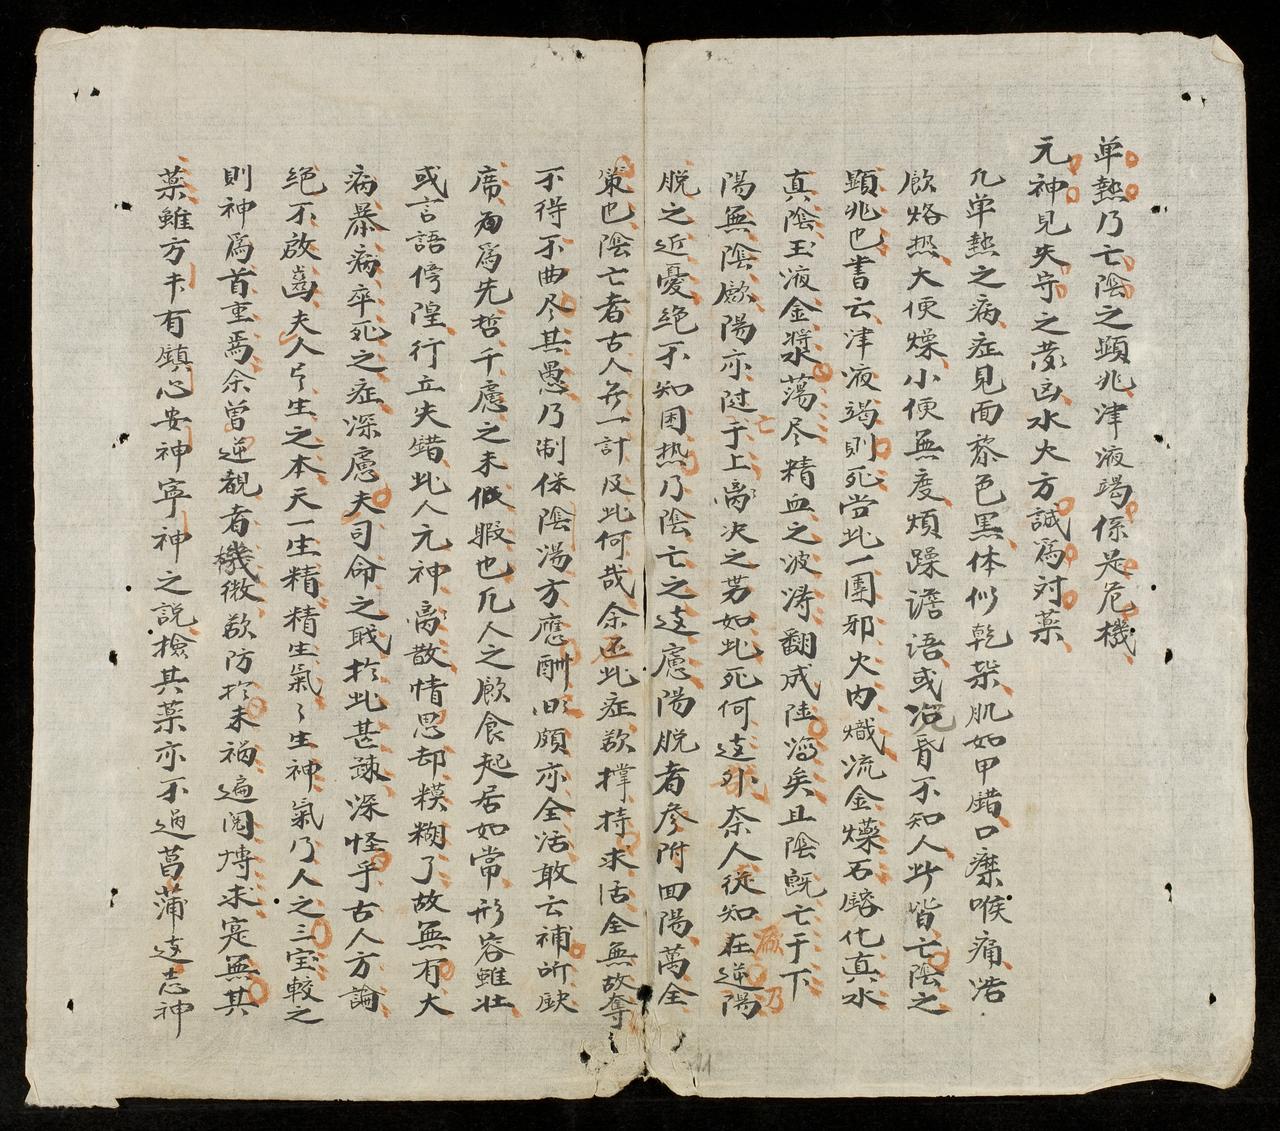 单熱乃亡陰之顕兆津液竭係是危機
元神見失守之芽凶水火方誠爲对薬
凡单熱之病症見面黎色黒体似乾柴肌如甲錯口糜喉痛浩
飲烙热大便燥小便無度煩躁譫語或沉昏不知人此皆亡陰之
顕兆也書云津液竭則死当此一團邪火内熾流金爍石鎔化真水
真陰玉液金漿蕩尽精血之波濤翻成陸海矣且陰既亡于下
陽無陰歛陽亦过于上离决之势如此死何遠外奈人徒知在逆陽
亡
厥乃
脱之近憂絶不知困热乃陰亡之遠慮陽脱者参附回陽萬全
策也陰亡者古人無一計及此何哉余因此症欲撑持求活全無故奪
不得不曲尽其愚乃制保陰湯方應酬以来頗亦全活敢云補所缺
席而爲先哲千慮之未備暇也凡人之飲食起居如常形容雖壮
或言語傍隍行立失錯此人元神离散情思却糢糊了故無有大
病暴病卒死之症深慮夫司命之职於此甚疎深怪乎古人方論
絶不啟齒夫人与生之本天一生精精生氣〻生神氣乃人之三宝較之
則神爲首重焉余曾逆観者機微欲防於未禍遍阅博求寔無其
薬雖方未有鎮心安神寧神之説檢其薬亦不過菖蒲遠志神
11